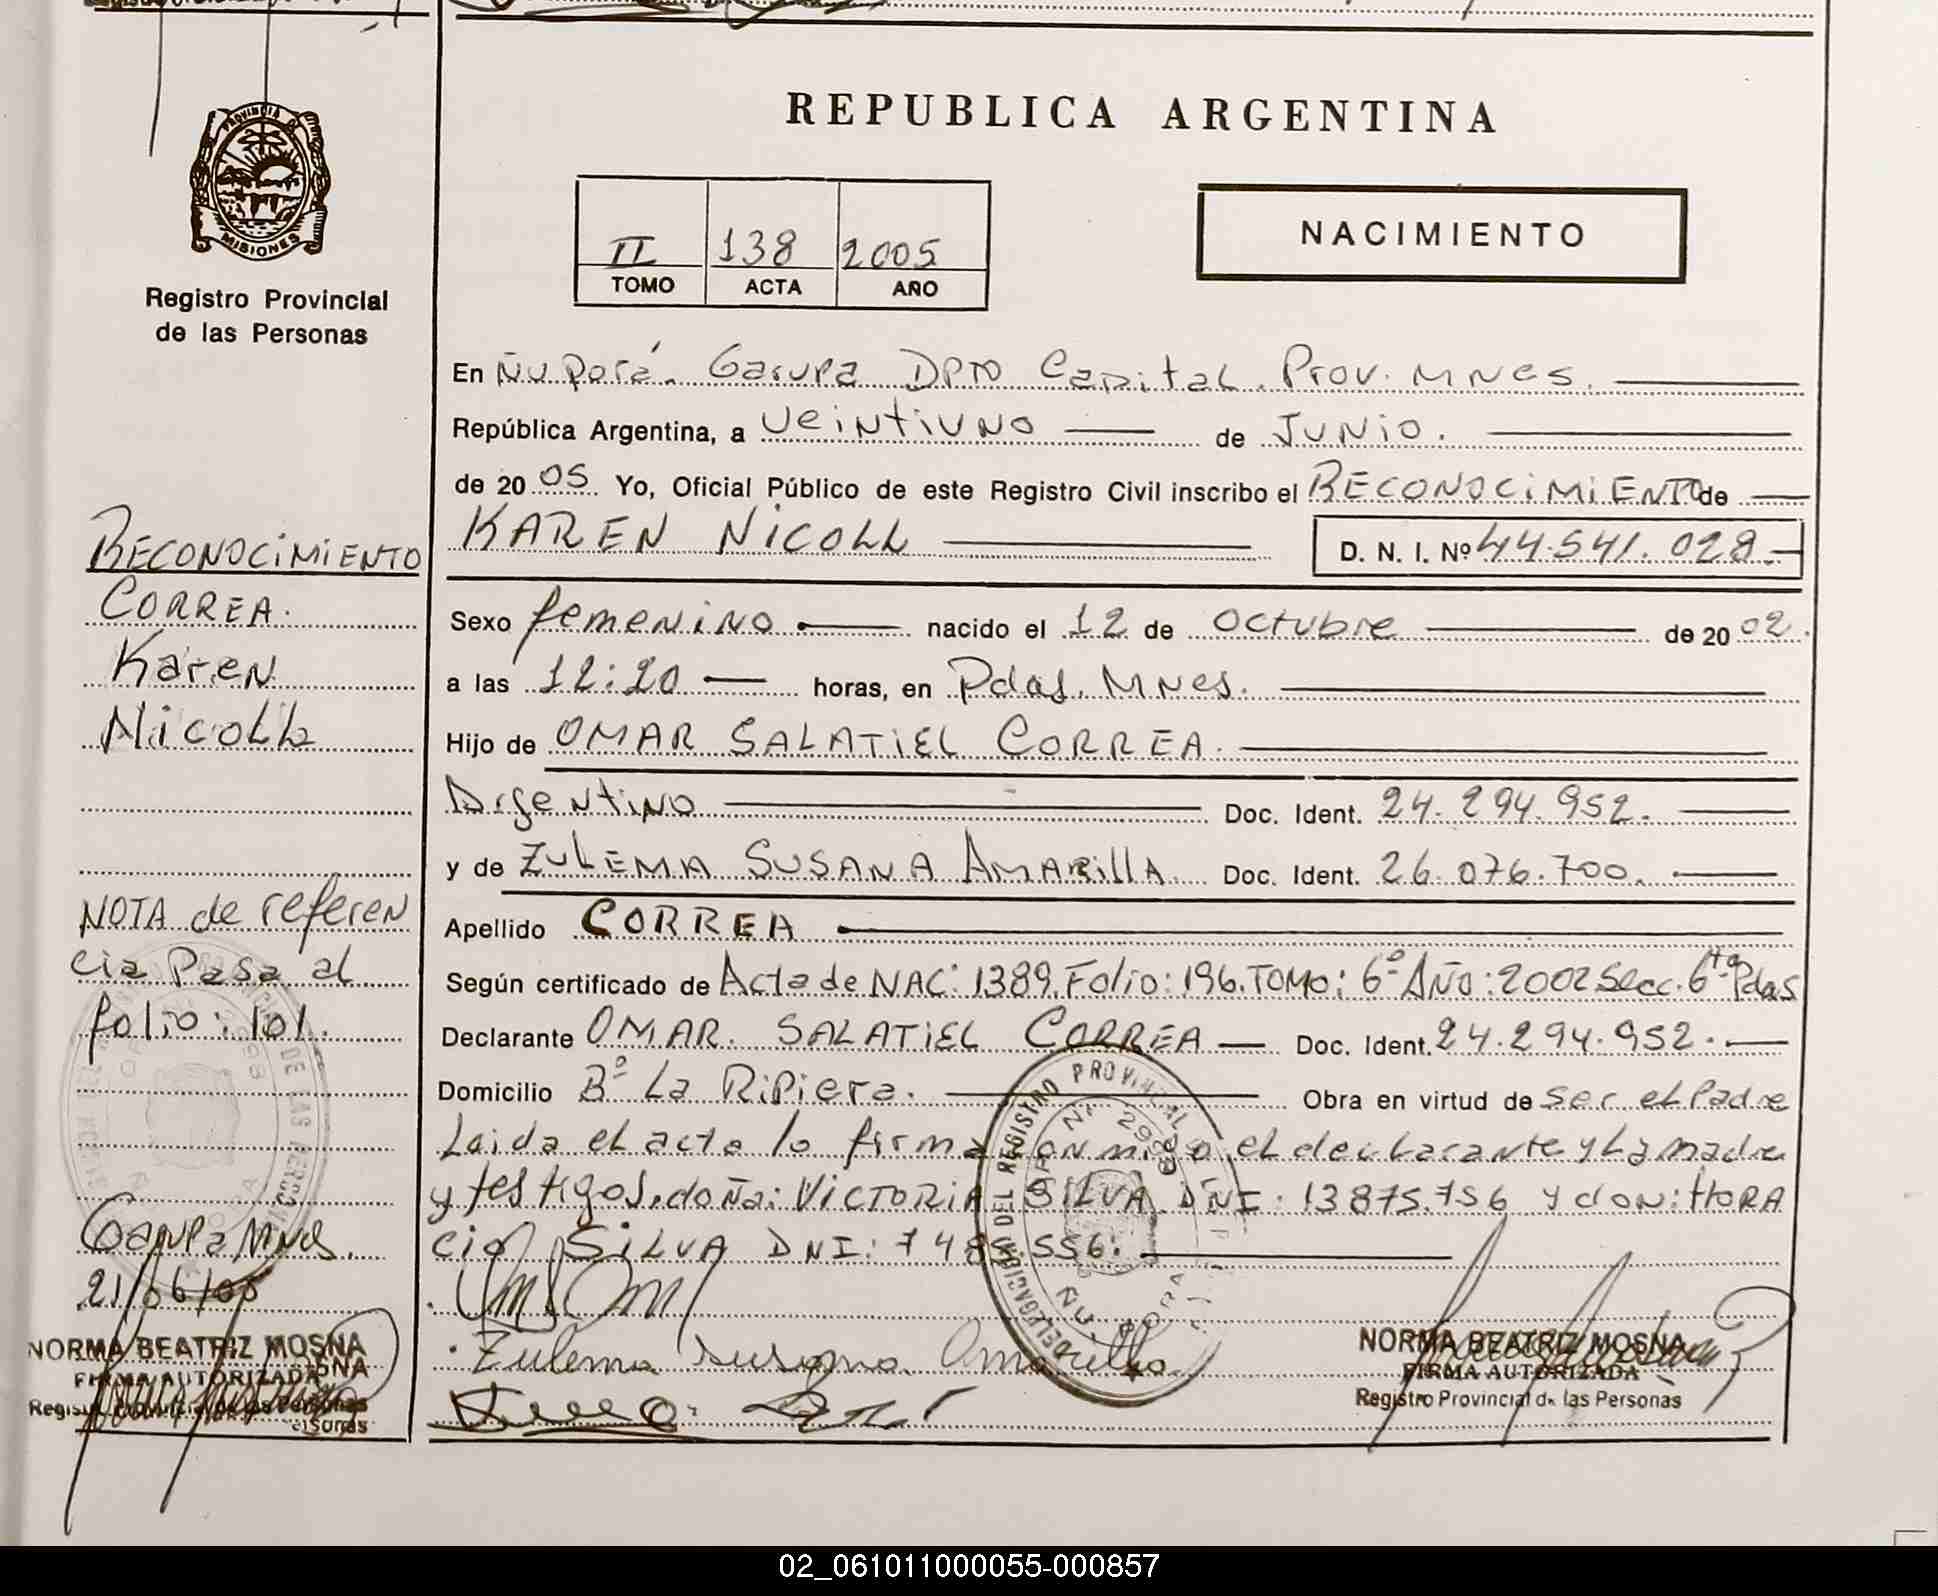 REPUBLICA ARGENTINA
PROVINCIA DE
MISIONES
Registro Provincial
de las Personas
II 138 2005
TOMO ACTA AÑO
NACIMIENTO
En Ñu porá. Garupa DPTO Capital. Prov. MNes.
República Argentina, a Veintiuno de Junio.
de 2005 Yo, Oficial Público de este Registro Civil inscribo el RECONOCIMIENTO de
KAREN NICOLL
D. N. I. Nº 44.541.028.-
Sexo femenino nacido el 12 de octubre de 2002.
a las 12:20 horas, en Pdas. MNes.
Hijo de OMAR SALATIEL CORREA.
Argentino Doc. Ident. 24.294.952.
y de ZULEMA SUSANA AMARILLA. Doc. Ident. 26.076.700.
Apellido CORREA
Según certificado de Acta de NAC: 1389. Folio: 196. TOMO: 6º AÑO: 2002 Secc. 6ta Pdas
Declarante OMAR. SALATIEL CORREA Doc. Ident. 24.294.952.
Domicilio Bº La Ripiera. Obra en virtud de ser el Padre
Laida el acta lo firma conmigo el declarante y la madre
y testigos. doña: VICTORIA SILVA DNI: 13875.756 y don: HORA
cio SILVA DNI: 748 .556.
Zulema Susana Amarilla
DELEGACION DEL REGISTRO PROVINCIAL
ÑU PORA
NORMA BEATRIZ MOSNA
FIRMA AUTORIZADA
Registro Provincial de las Personas
RECONOCIMIENTO
CORREA.
Karen
Nicoll
NOTA de referen
cia Pasa al
folio: 101.
Garupa MNes.
21/06/05
NORMA BEATRIZ MOSNA
FIRMA AUTORIZADA
Registro Provincial de las Personas
02_061011000055-000857